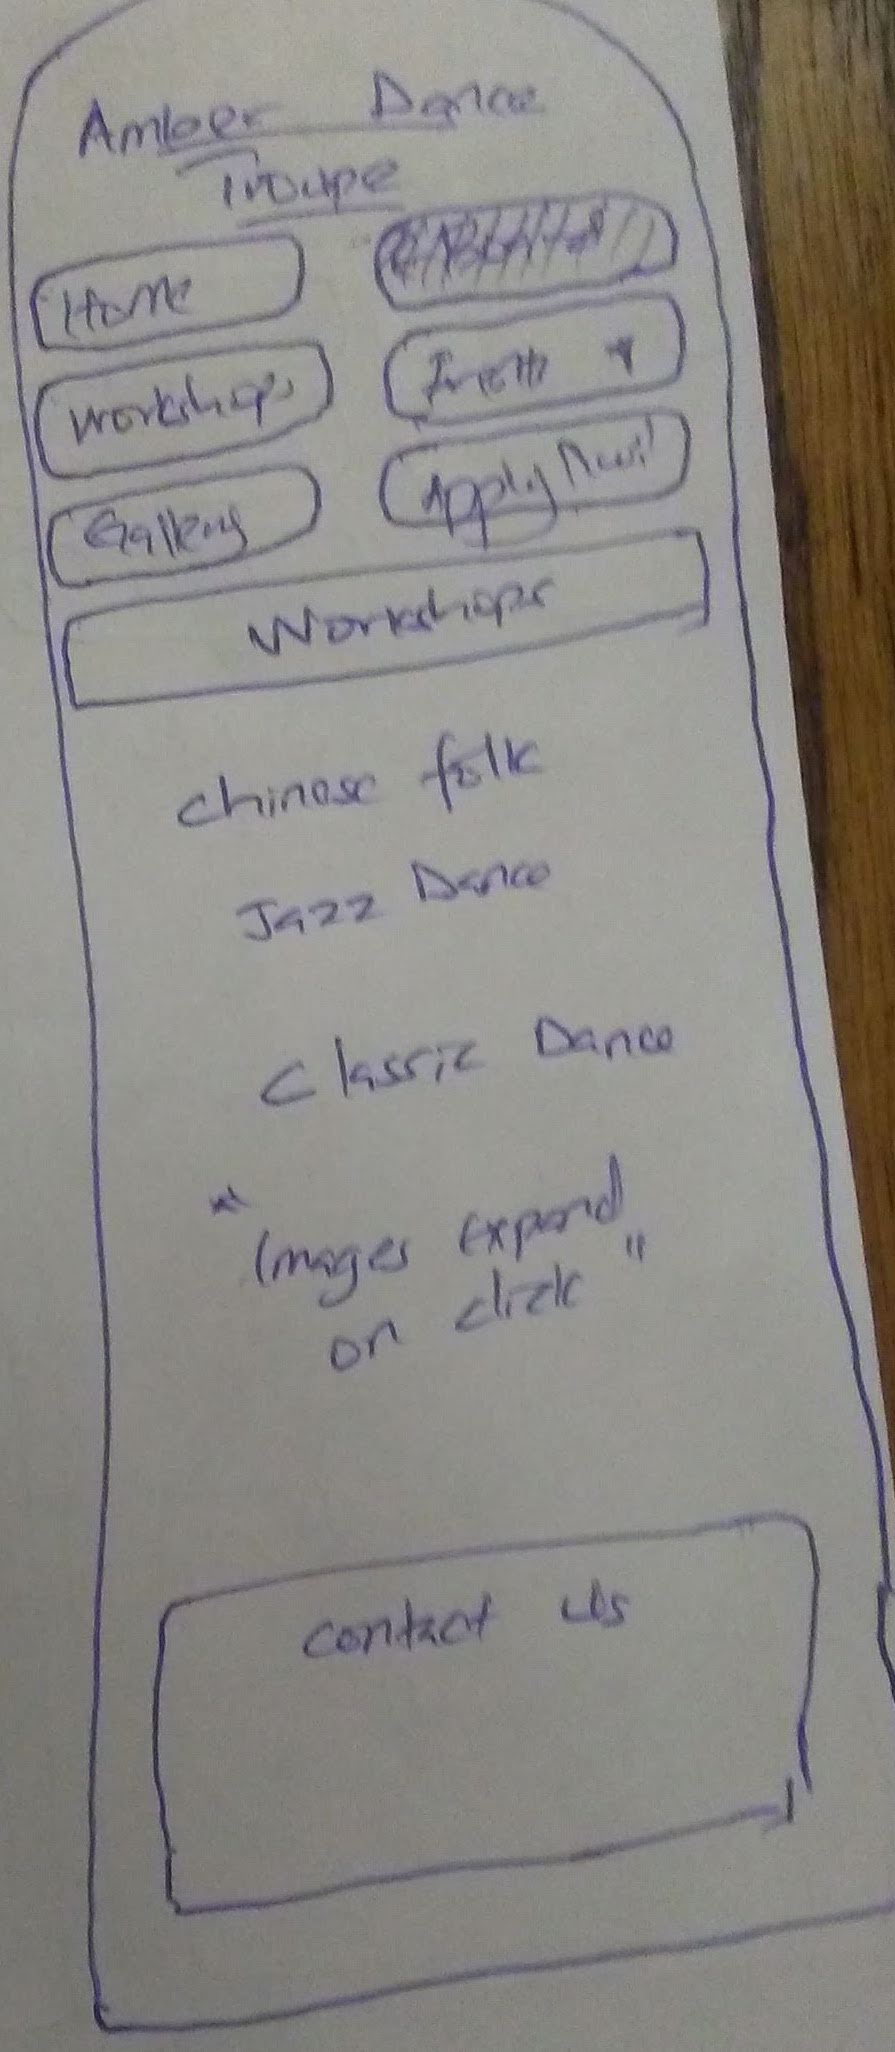 Amber Dance
Troupe
Home
Workshops
Gallery
Apply Now!
Workshops
Chinese folk
Jazz Dance
Classic Dance
*
Images expand
on click "
Contact Us